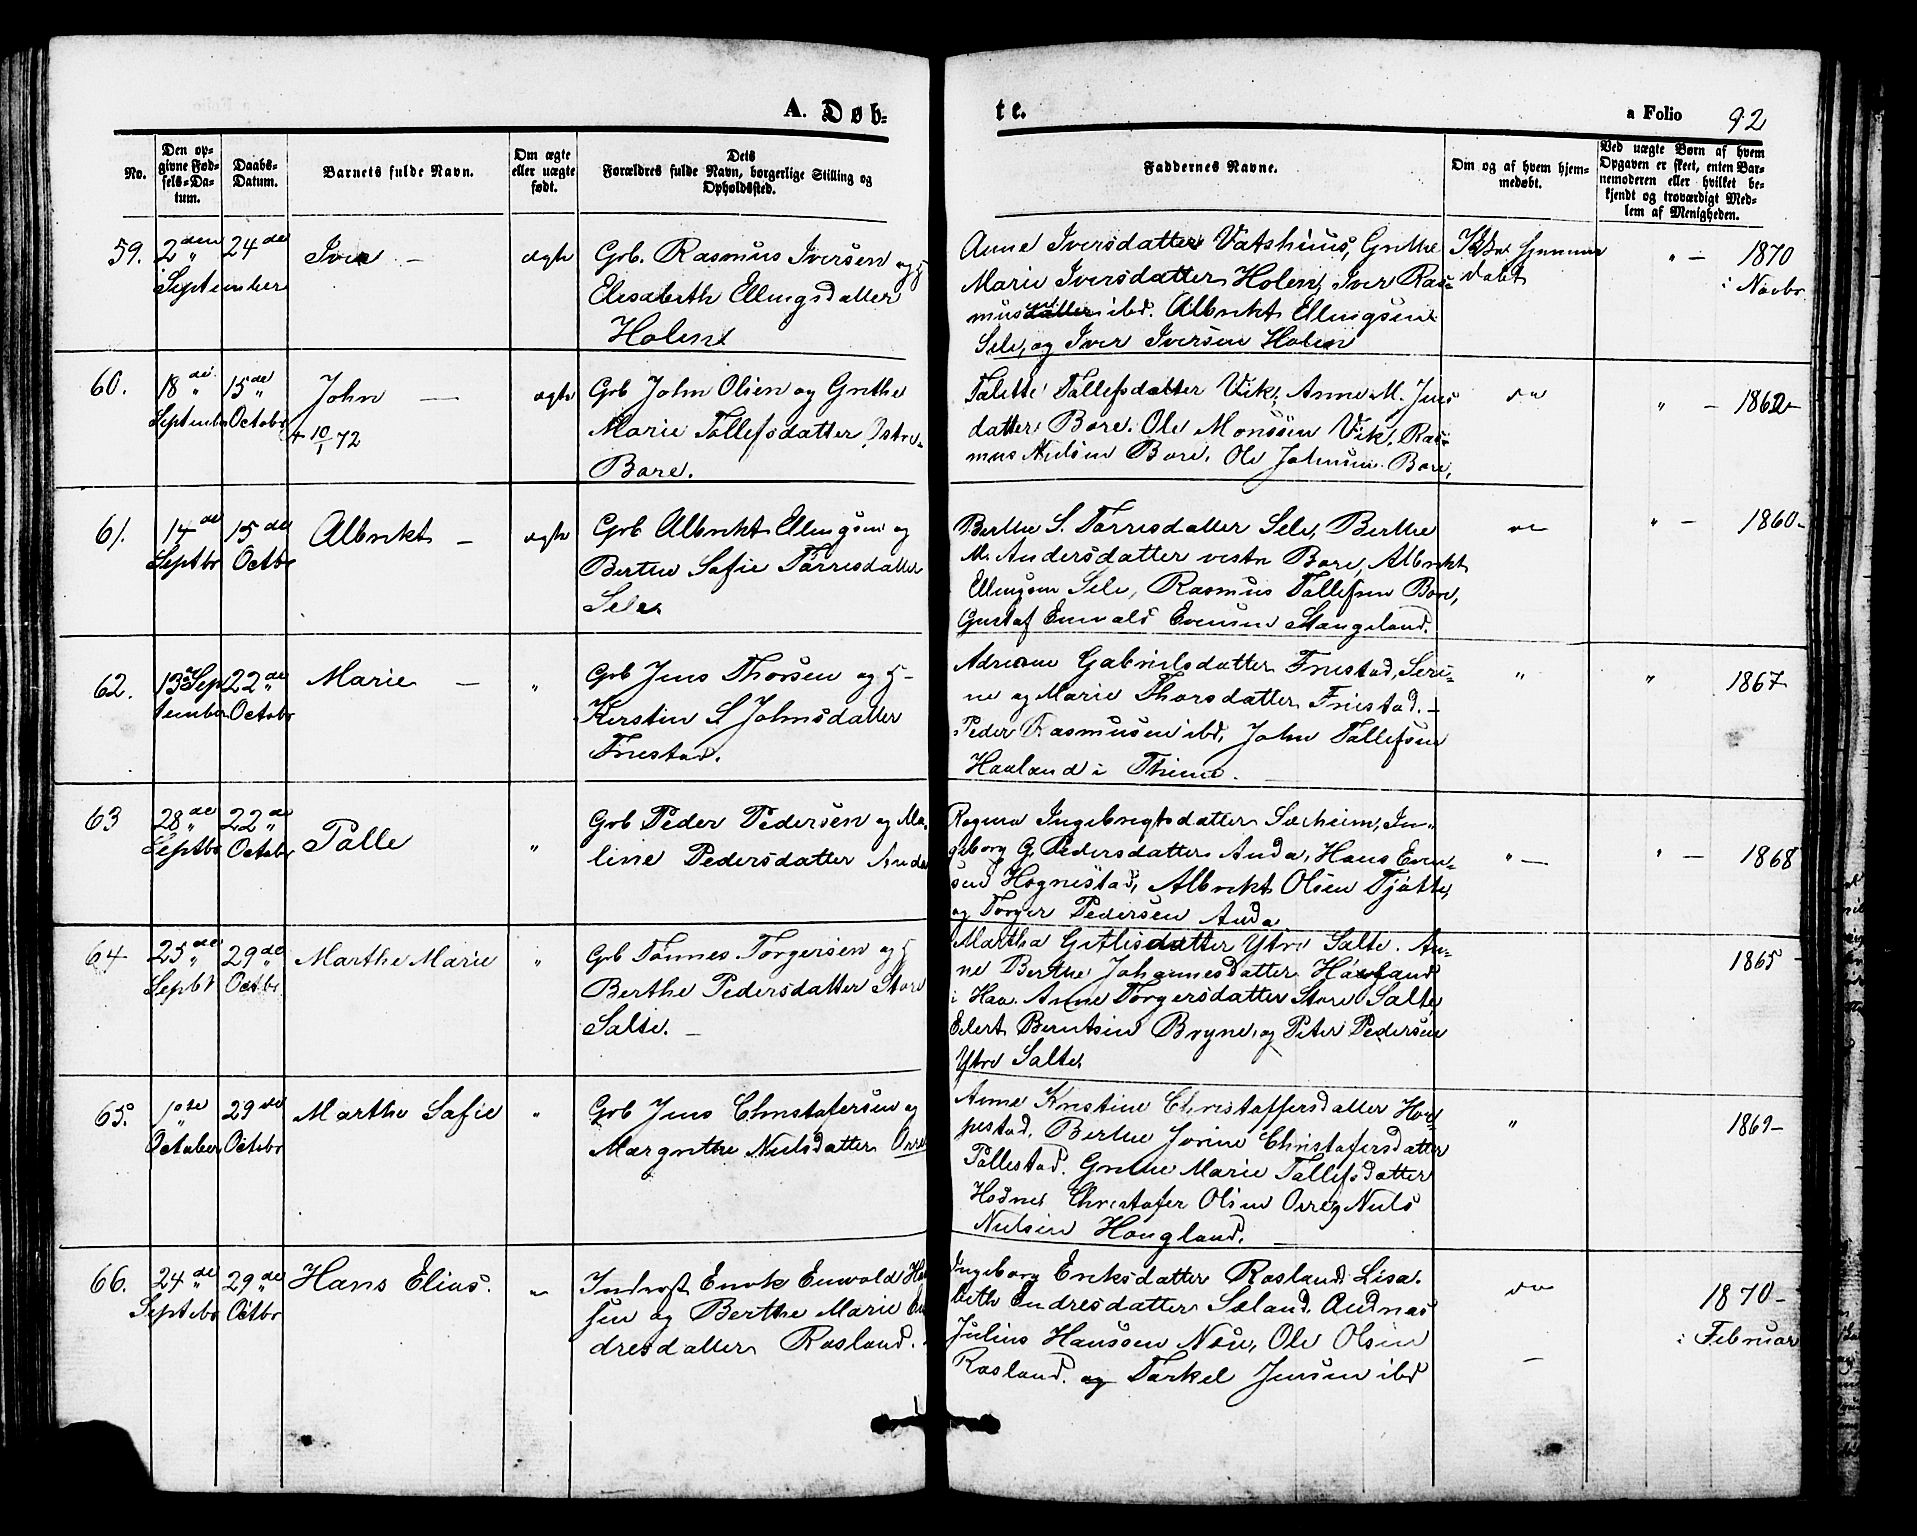 A. Døb-
te.
a Folio 92
No.
Den op-
givne Fød-
sels-Da-
tum.
Daabs-
Datum.
Barnets fulde Navn.
Om ægte
eller uægte
født.
Dets
Forældres fulde Navn, borgerlige Stilling og
Opholdssted.
Faddernes Navne.
Om og af hvem hjem-
medøbt.
Ved uægte Børn af hvem
Opgaven er skeet, enten Bar-
nemoderen eller hvilket be-
kjendt og troværdigt Med-
lem af Menigheden.
59. 2den 24de Iver — ægte
September
Grb. Rasmus Iversen og H
Elisaberth Ellingsdatter
Holen
Anne Iversdatter Vatshuus, Grethe
Marie Iversdatter Holen, Iver Ras-
mus ibd. Albrekt Ellingsen
Sele, og Iver Iversen Holen
Ikke hjemme
døbt
" — 1870
i Novbr
60. 18de 15de John — ægte
September Octobr
+ 10/1 72
Grb John Olsen og Grethe
Marie Tollefsdatter Østre
Bore.
Talette Tollefsdatter Vik, Anne M. Jens
datter Bore. Ole Monssen Vik. Ras-
mus Nielsen Bore, Ole Johnsen Bore,
" — 1862—
61. 14de 15de Albrekt — ægte
Septbr Octbr
Grb Albrekt Ellingsen og
Berthe Sofie Torresdatter
Sele
Berthe S. Torresdatter Sele, Berthe
M. Andersdatter vestre Bore, Albrekt
Ellingsen Sele, Rasmus Tollefsen Bore,
Gustaf Enwald Evensen Stangeland.
" — 1860-
62. 13de Sep 22de Marie — "
tember Octobr
Grb Jens Thorsen og H-
Kerstine S Johnsdatter
Friestad.
Adriane Gabrielsdatter Friestad, Seri-
ne og Marie Thorsdatter Friestad. —
Peder Rasmussen ibd, John Tollefsen
Haaland i Thime.
" " 1867
63 28de 22de Palle "
Septbr Octobr
Grb Peder Pedersen og Ma-
line Pedersdatter Anda
Ragna Ingebrigtsdatter Sæheim, In-
geborg G. Pedersdatter Anda, Hans Even-
sen Hognestad, Albrekt Olsen Tjøtte,
og Torger Pedersen Anda
" — " — 1868
64 25de 29de Marthe Marie "
Septbr Octbr
Grb Tønnes Torgersen og H
Berthe Pedersdatter Store
Salte. —
Martha Gitlisdatter Ytre Salte. An-
ne Berthe Johannesdatter Haaland
i Haa. Anne Torgersdatter Store Salte,
Eilert Berntsen Bryne, og Peter Pedersen
Ytre Salte.
1865 —
65. 1ste 29de Marthe Sofie "
October Octobr
Grb Jens Christofersen og
Margrethe Nielsdatter Orre
Anne Kristine Christoffersdatter Hor-
pestad, Berthe Jorine Christofersdatter
Pollestad. Grethe Marie Tollefsdatter
Hodne, Christofer Olsen Orre, Niels
Nielsen Hongland.
" 1869—
66. 24de 29de Hans Elias. "
Septebr Octbr
Indrost Enok Enwald Han
sen og Berthe Marie En
dresdatter Rosland.
Ingeborg Eriksdatter Rosland, Lisa-
beth Endresdatter Sæland, Andreas
Julius Hanssen Nøse, Ole Olsen
Rosland, og Torkel Jensen ibd
—
1870—
i Februar